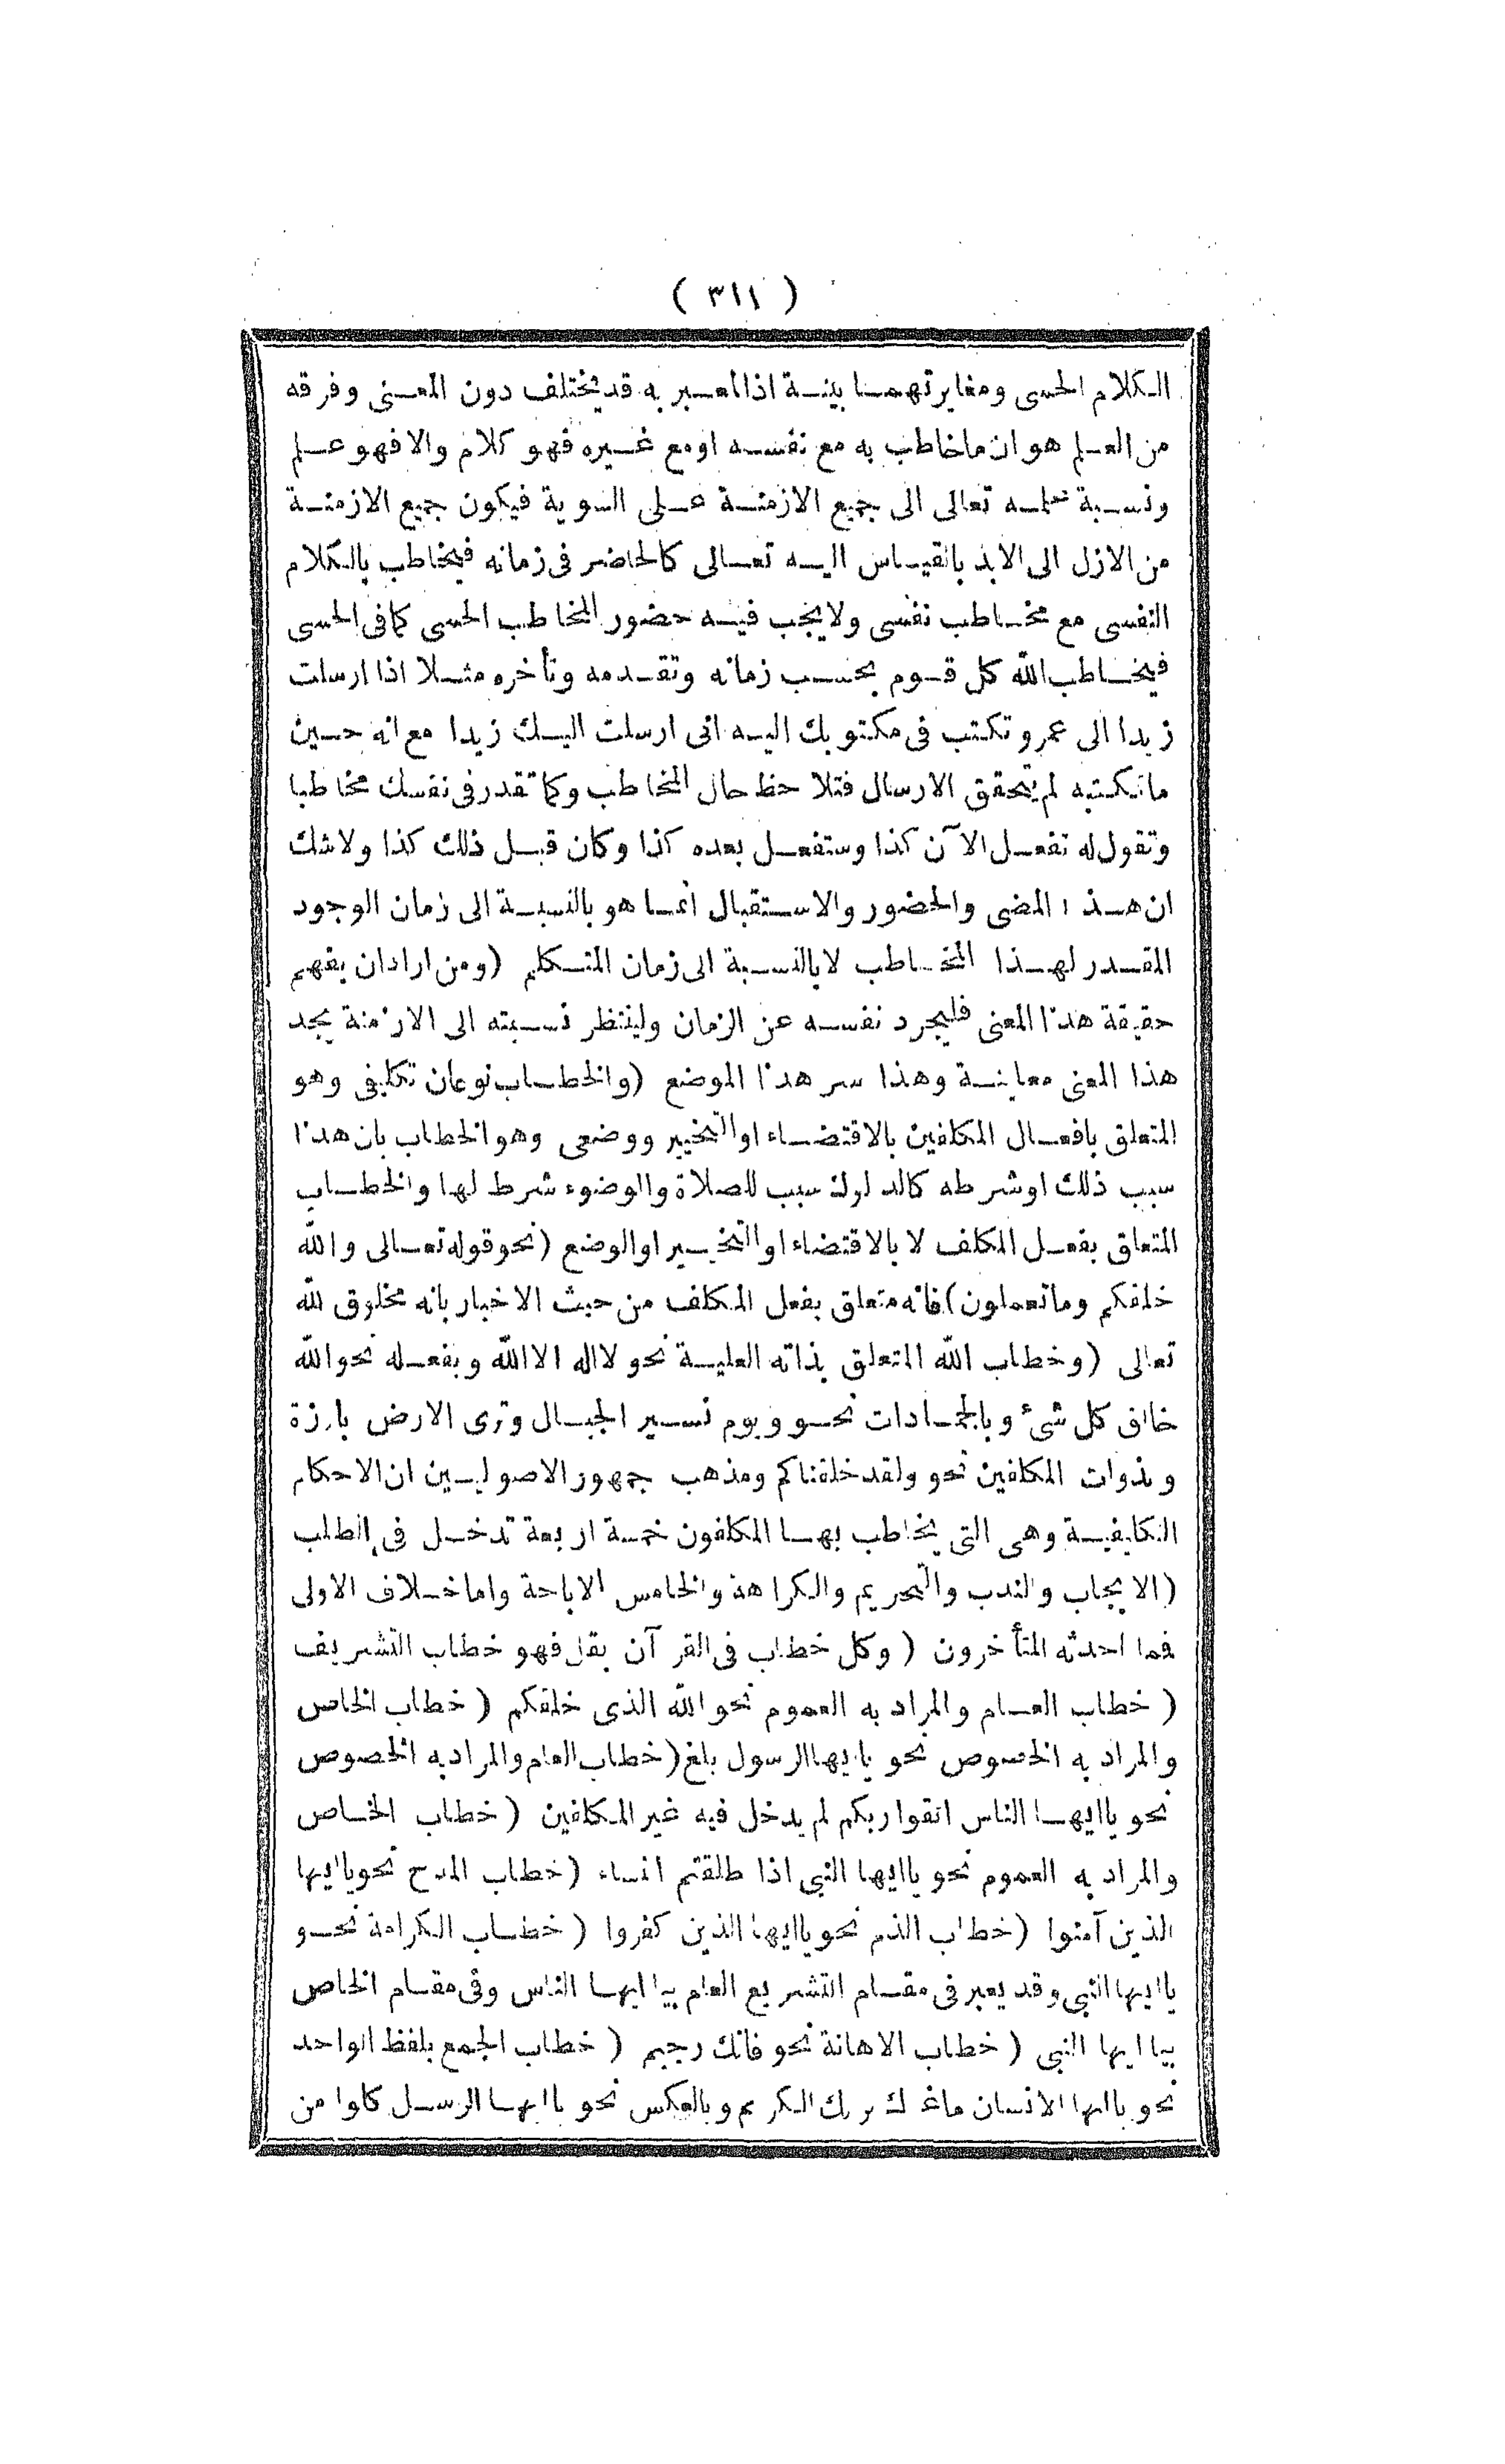 ( ٣١١ )
الكلام الحسى ومغايرتهما بينة اذ المعبر به قد يختلف دون المعنى وفرقه
من العلم هو ان ما خاطب به مع نفسه او مع غيره فهو كلام والا فهو علم
ونسبة علمه تعالى الى جميع الازمنة على السوية فيكون جميع الازمنة
من الازل الى الابد بالقياس اليه تعالى كالحاضر فى زمانه فيخاطب بالكلام
النفسى مع مخاطب نفسى ولا يجب فيه حضور المخاطب الحسى كما فى الحسى
فيخاطب الله كل قوم بحسب زمانه وتقدمه وتأخره مثلا اذا ارسلت
زيدا الى عمرو تكتب فى مكتوبك اليه انى ارسلت اليك زيدا مع انه حين
ما تكتبه لم يتحقق الارسال فتلاحظ حال المخاطب وكما تقدر فى نفسك مخاطبا
وتقول له تفعل الآن كذا وستفعل بعده كذا وكان قبل ذلك كذا ولا شك
ان هذا المضى والحضور والاستقبال انما هو بالنسبة الى زمان الوجود
المقدر لهذا المخاطب لا بالنسبة الى زمان المتكلم (ومن اراد ان يفهم
حقيقة هذا المعنى فليجرد نفسه عن الزمان ولينتظر نسبته الى الازمنة يجد
هذا المعنى معاينة وهذا سر هذا الموضع (والخطاب نوعان تكليفى وهو
المتعلق بافعال المكلفين بالاقتضاء او التخيير ووضعى وهو الخطاب بان هذا
سبب ذلك او شرطه كالدلوك سبب للصلاة والوضوء شرط لها والخطاب
المتعلق بفعل المكلف لا بالاقتضاء او التخيير او الوضع (نحو قوله تعالى والله
خلقكم وما تعملون) فانه متعلق بفعل المكلف من حيث الاخبار بانه مخلوق لله
تعالى (وخطاب الله المتعلق بذاته العلية نحو لا اله الا الله وبفعله نحو الله
خالق كل شئ وبالجمادات نحو ويوم نسير الجبال وترى الارض بارزة
وبذوات المكلفين نحو ولقد خلقناكم ومذهب جمهور الاصوليين ان الاحكام
التكليفية وهى التى يخاطب بها المكلفون خمسة اربعة تدخل فى الطلب
(الايجاب والندب والتحريم والكراهة والخامس الاباحة واما خلاف الاولى
فما احدثه المتأخرون (وكل خطاب فى القرآن بقل فهو خطاب التشريف
(خطاب العام والمراد به العموم نحو الله الذى خلقكم (خطاب الخاص
والمراد به الخصوص نحو يا ايها الرسول بلغ (خطاب العام والمراد به الخصوص
نحو يا ايها الناس اتقوا ربكم لم يدخل فيه غير المكلفين (خطاب الخاص
والمراد به العموم نحو يا ايها النبى اذا طلقتم النساء (خطاب المدح نحو يا ايها
الذين آمنوا (خطاب الذم نحو يا ايها الذين كفروا (خطاب الكرامة نحو
يا ايها النبى وقد يعبر فى مقام التشريع العام بيا ايها الناس وفى مقام الخاص
بيا ايها النبى (خطاب الاهانة نحو فانك رجيم (خطاب الجمع بلفظ الواحد
نحو يا ايها الانسان ما غرك بربك الكريم وبالعكس نحو يا ايها الرسل كلوا من